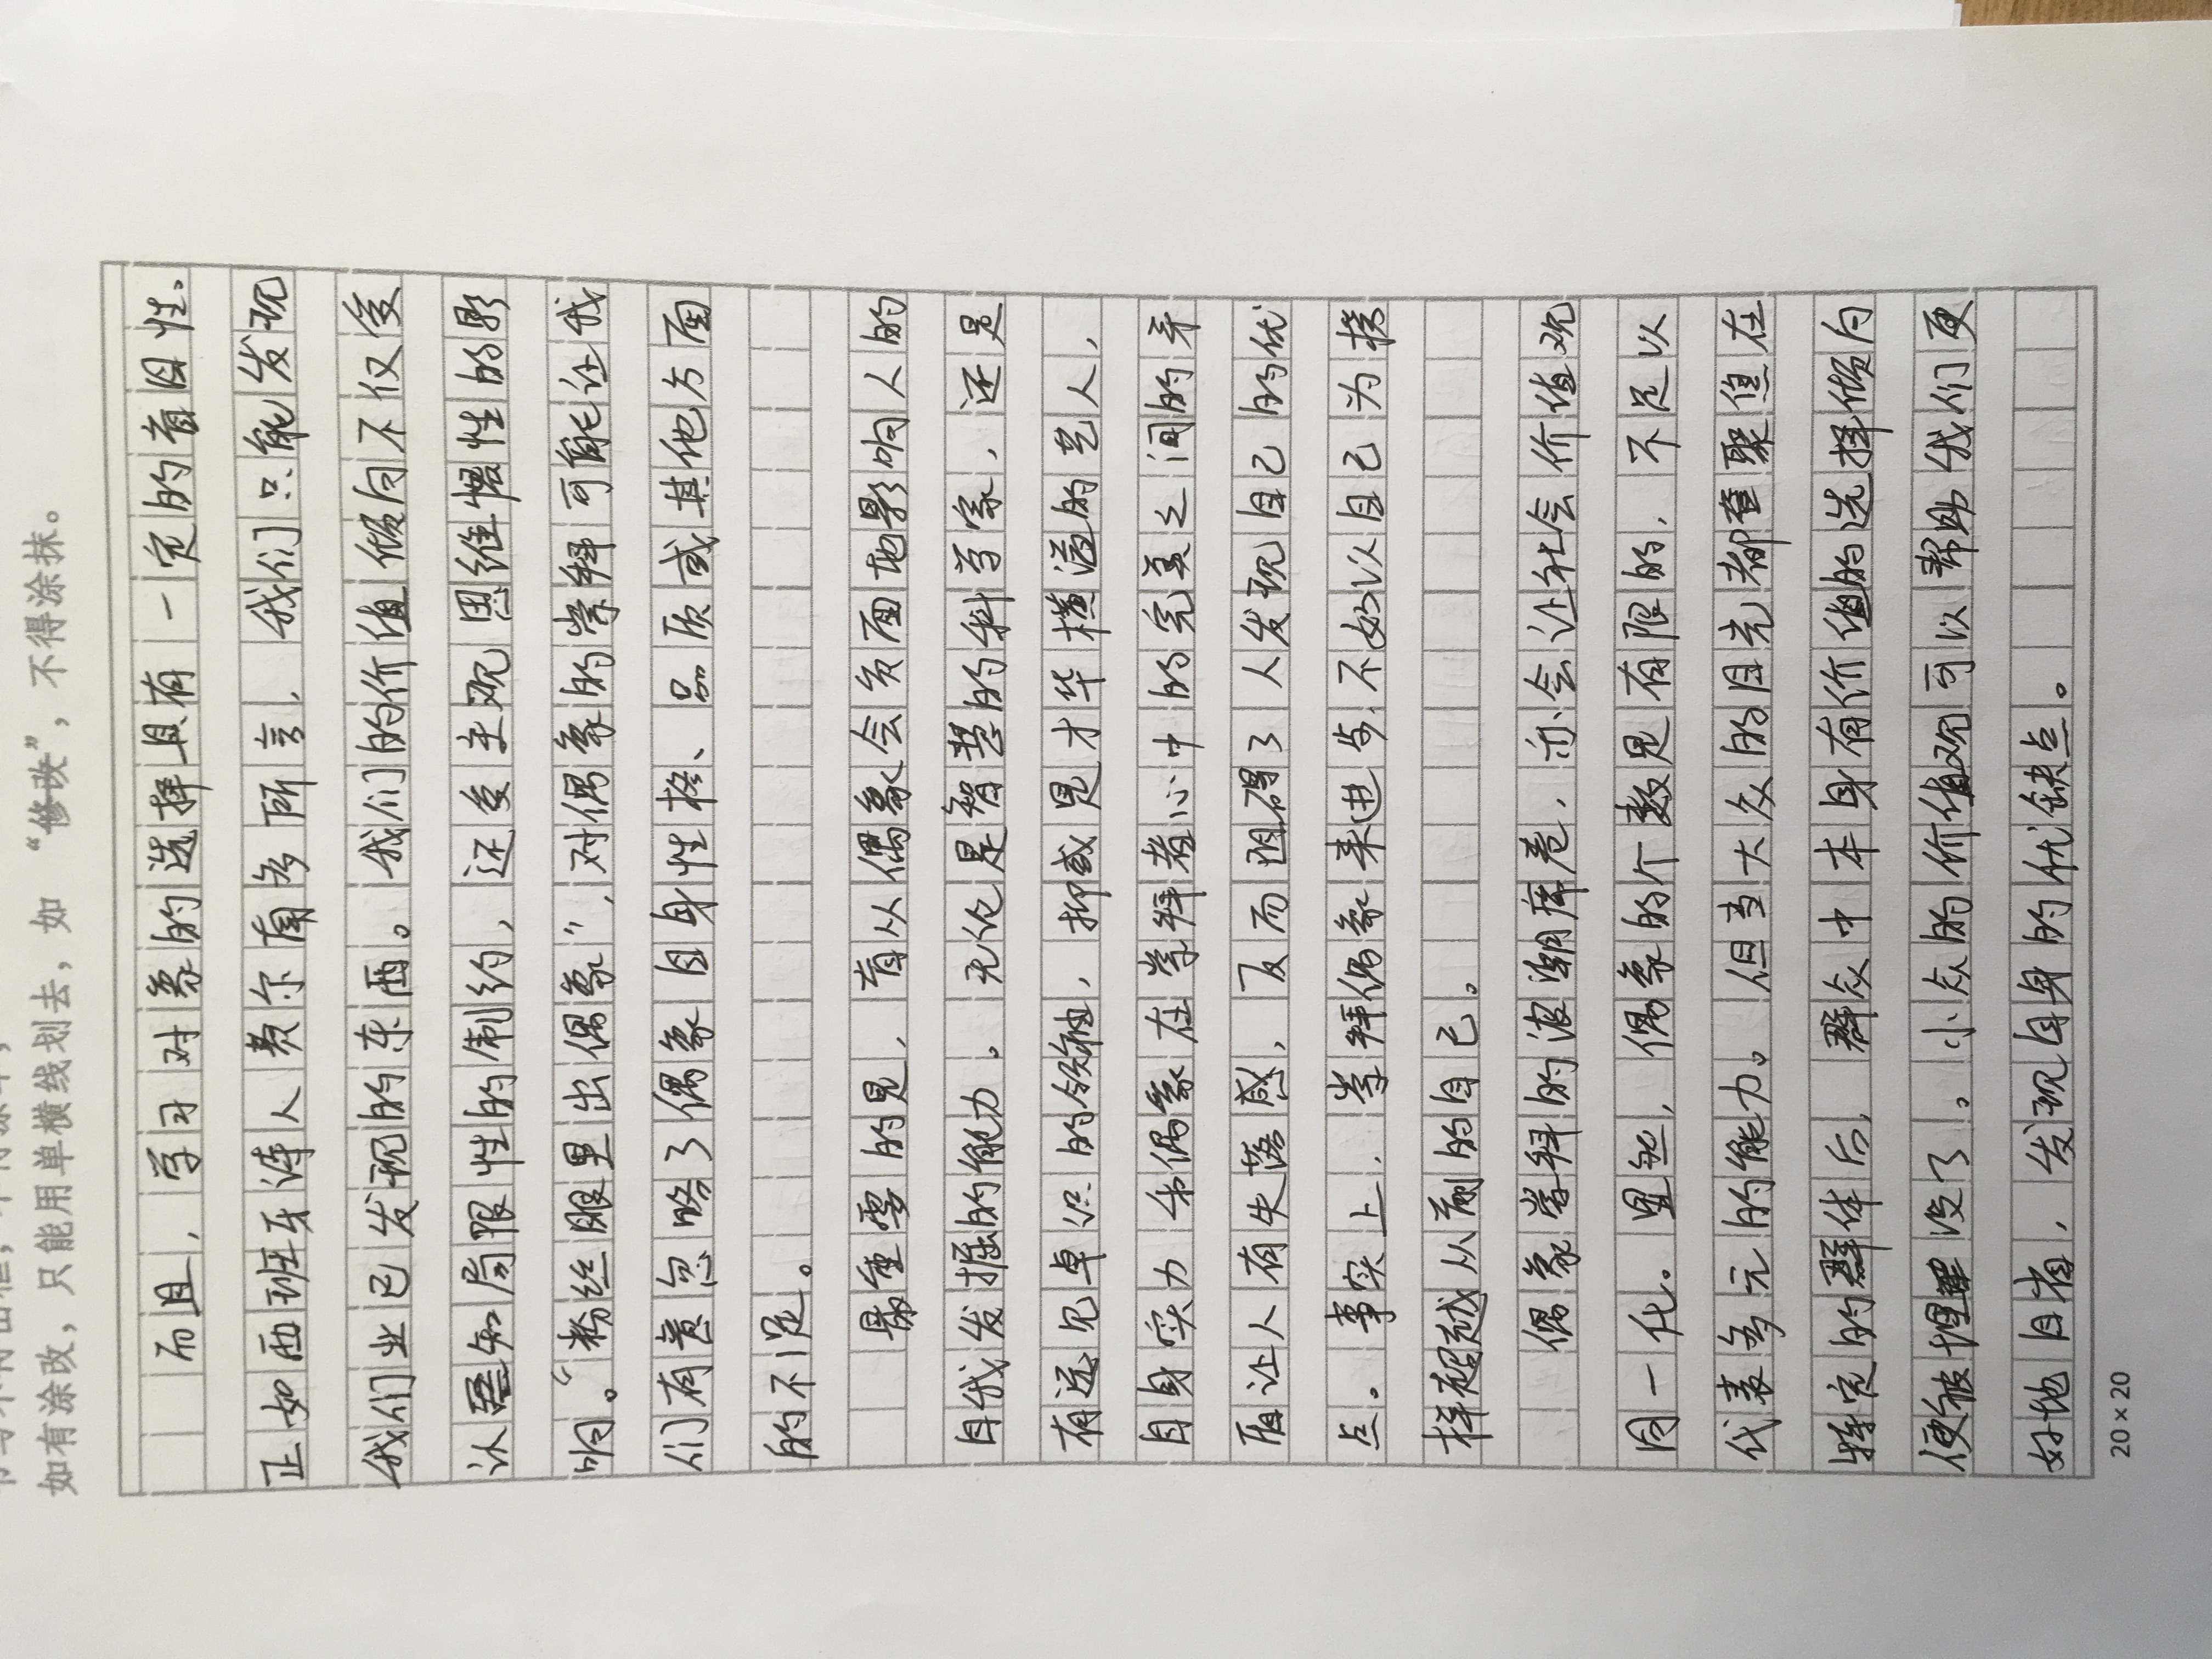 如有涂改，只能用单横线划去，如“修改”，不得涂抹。
而且，学习对象的选择具有一定的盲目性。
正如西班牙诗人费尔南多所言，我们只能发现
我们业已发现的东西。我们的价值倾向不仅受
认知局限性的制约，还受主观思维惯性的影
响。“粉丝眼里出偶象”，对偶象的崇拜可能让我
们有意忽略了偶象自身性格、品质或其他方面
的不足。
最重要的是，盲从偶象会负面地影响人的
自我发掘的能力。无论是智慧的科学家，还是
有远见卓识的领袖，抑或是才华横溢的艺人，
自身实力和偶象在崇拜者心中的完美之间的矛
盾让人有失落感，反而阻碍了人发现自己的优
点。事实上，崇拜偶象来进步，不如以自己为榜
样超越从前的自己。
偶象崇拜的浪潮席卷，亦会让社会价值观
同一化。显然，偶象的个数是有限的，不足以
代表多元的能力。但当大众的目光都聚焦在
特定的群体后，群众中本身有价值的选择倾向
便被埋没了。小众的价值观可以帮助我们更
好地自省，发现自身的优缺点。
20×20